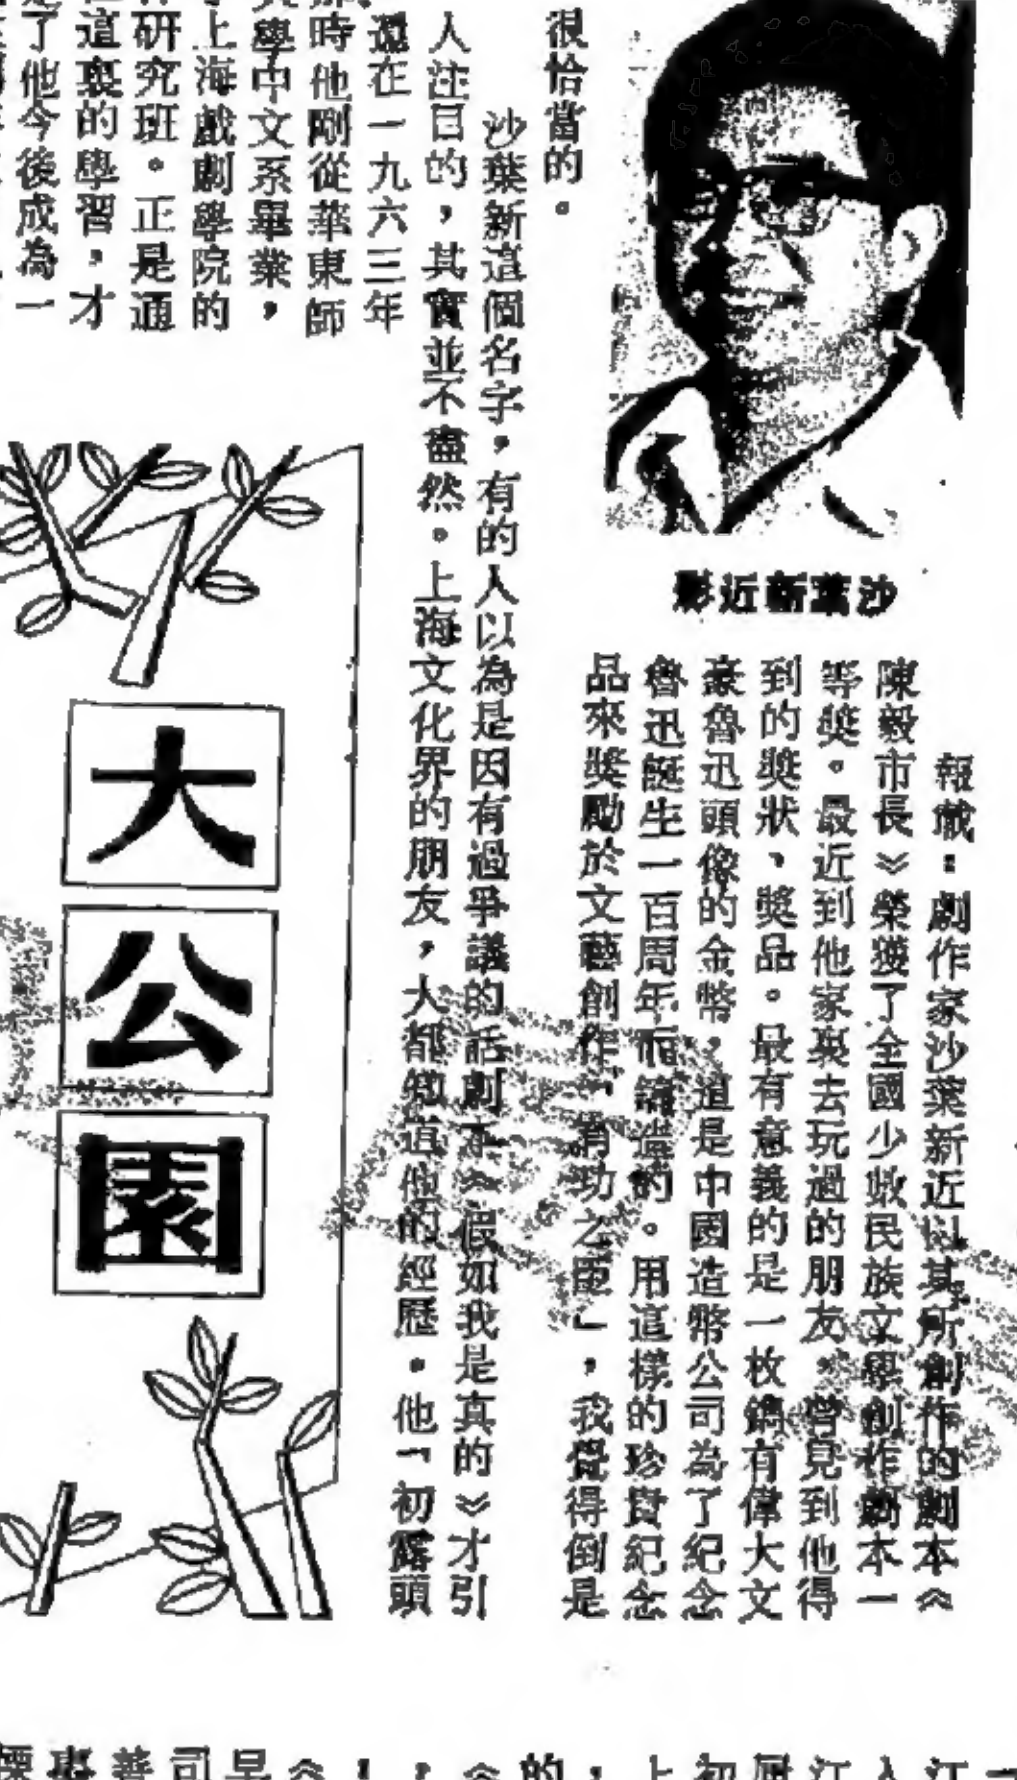 沙葉新近影
報載：劇作家沙葉新近以其所創作的劇本《
陳毅市長》榮獲了全國少數民族文學創作劇本一
等獎。最近到他家裏去玩過的朋友，曾見到他得
到的獎狀、獎品。最有意義的是一枚鑄有偉大文
豪魯迅頭像的金幣，這是中國造幣公司為了紀念
魯迅誕生一百周年而鑄造的。用這樣的珍貴紀念
品來獎勵於文藝創作「有功之臣」，我覺得倒是
很恰當的。
沙葉新這個名字，有的人以為是因有過爭議的話劇本《假如我是真的》才引
人注目的，其實並不盡然。上海文化界的朋友，大都知道他的經歷。他「初露頭
還在一九六三年
時他剛從華東師
學中文系畢業，
上海戲劇學院的
研究班。正是通
這裏的學習，才
了他今後成為一
大公園